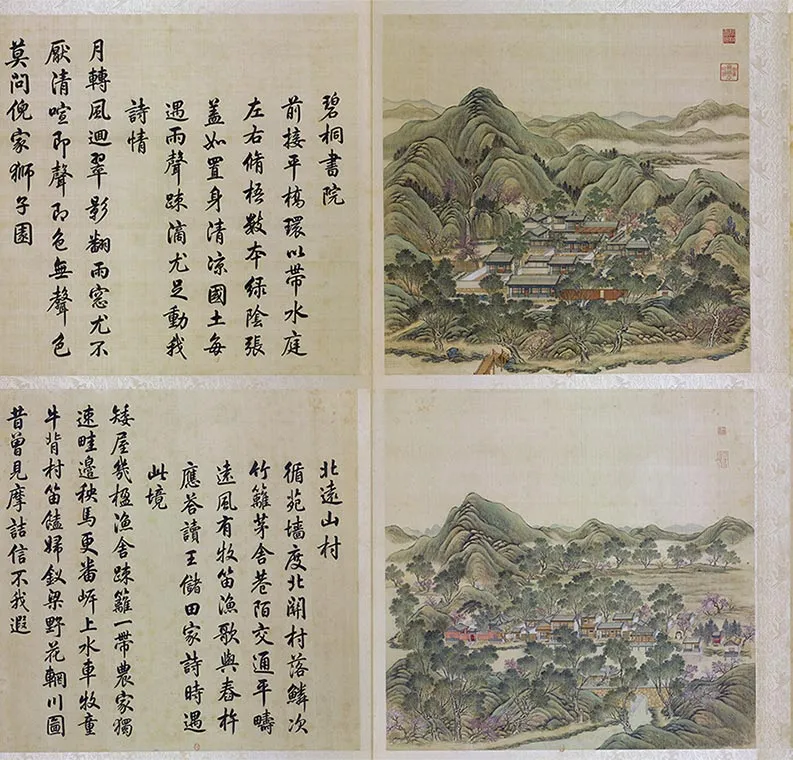 碧桐書院
前接平橋環以帶水庭
左右脩梧數本綠陰張
蓋如置身清涼國土每
遇雨聲踈滴尤足動我
詩情
月轉風迴翠影翻雨窓尤不
厭清喧即聲即色無聲色
莫問倪家獅子園
北遠山村
循苑墻度北關村落鱗次
竹籬茅舍巷陌交通平疇
遠風有牧笛漁歌與舂杵
應荅讀王儲田家詩時遇
此境
矮屋幾楹漁舍踈籬一帶農家獨
速畦邊秧馬更番㟁上水車牧童
牛背村笛饁婦釵梁野花輞川圖
昔曾見摩詰信不我遐